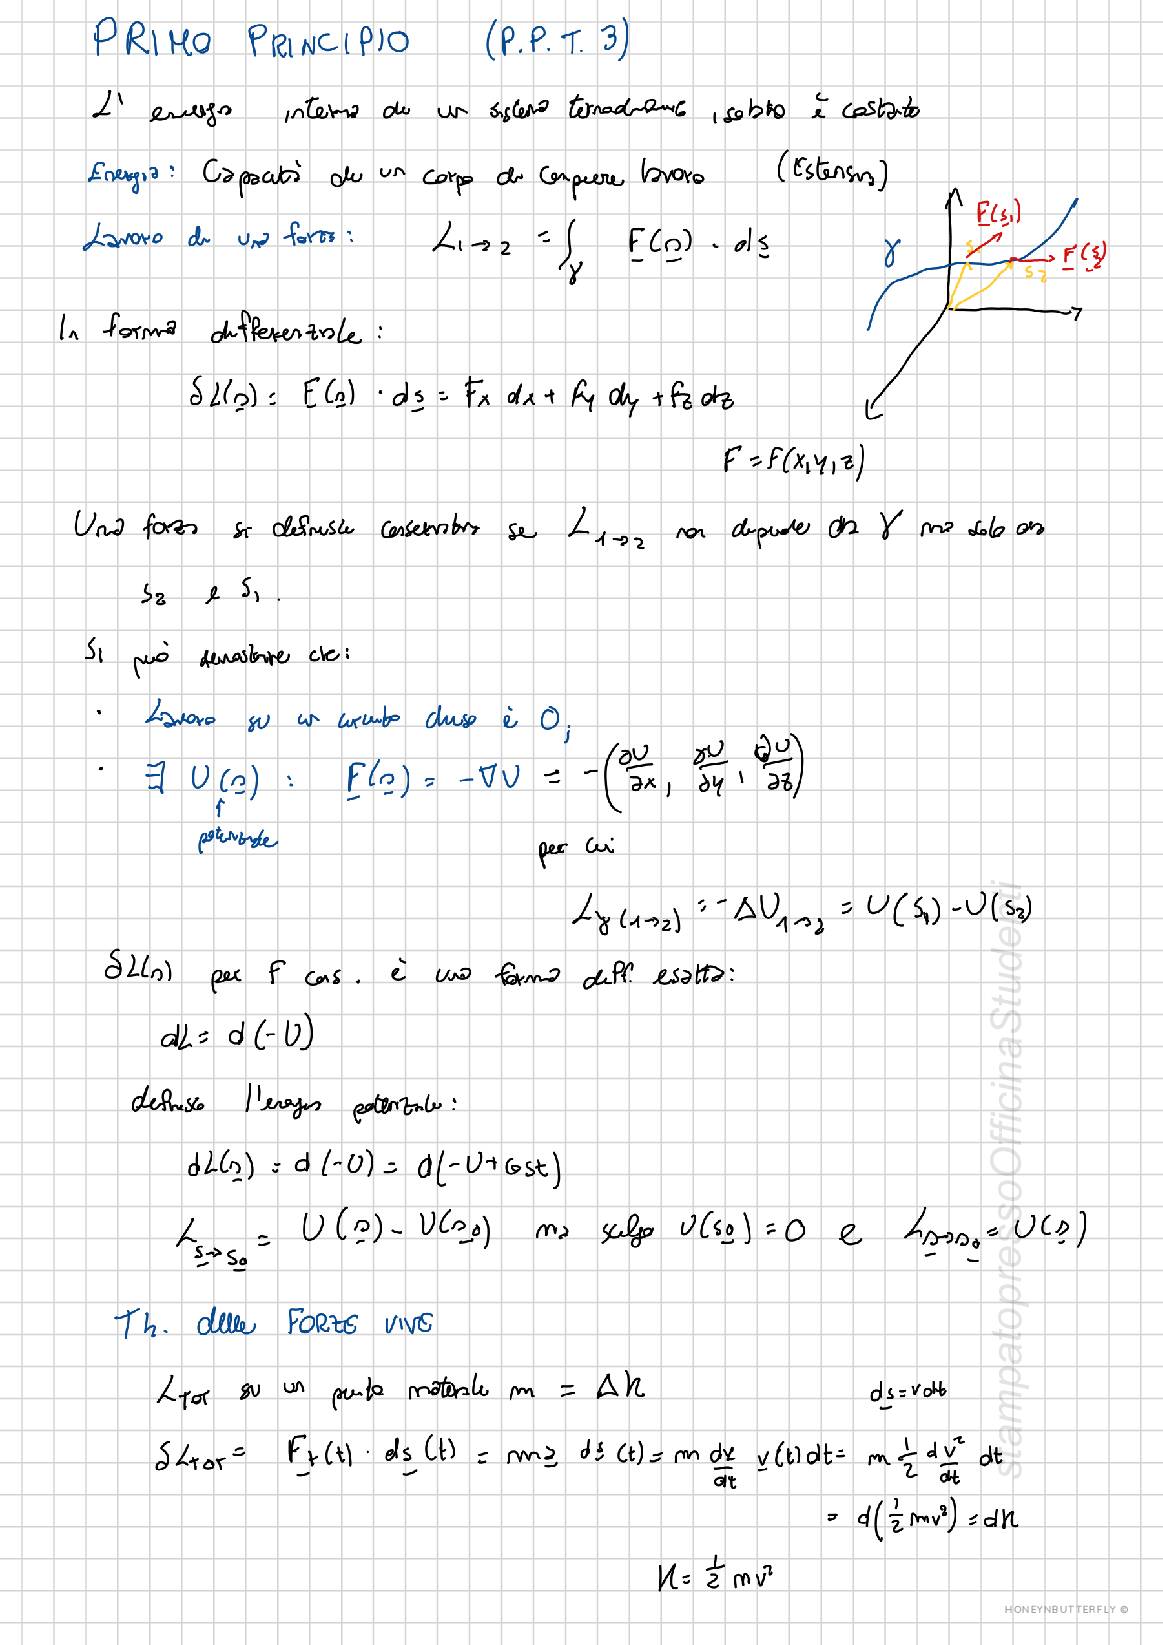 PRIMO PRINCIPIO (P.P.T. 3)
L' energia interna di un sistema termodinamico isolato è costante
Energia: Capacità di un corpo di compiere lavoro (Estensiva)
Lavoro di una forza: L1→2 = ∫γ F(s) · ds
γ F(s1) s1 F(s2) s2
In forma differenziale:
δL(s) = F(s) · ds = Fx dx + Fy dy + Fz dz
F = F(x,y,z)
Una forza si definisce conservativa se L1→2 non dipende da γ ma solo da
s2 e s1.
Si può dimostrare che:
· Lavoro su un circuito chiuso è 0;
· ∃ U(s) : F(s) = -∇U = -(∂U/∂x, ∂U/∂y, ∂U/∂z)
↑
potenziale
per cui
Lγ(1→2) = -ΔU1→2 = U(s1) - U(s2)
δL(s) per F cons. è una forma diff. esatta:
dL = d(-U)
definisco l'energia potenziale:
dL(s) = d(-U) = d(-U + cost)
Ls→s0 = U(s) - U(s0) ma scelgo U(s0) = 0 e Ls→s0 = U(s)
Th. delle FORZE VIVE
LTOT su un punto materiale m = ΔK
ds = v dt
δLTOT = Ft(t) · ds(t) = ma ds(t) = m dv/dt v(t) dt = m 1/2 dv²/dt dt
= d(1/2 mv²) = dK
K = 1/2 mv²
stampatopressoOfficinaStudenti
HONEYNBUTTERFLY ©